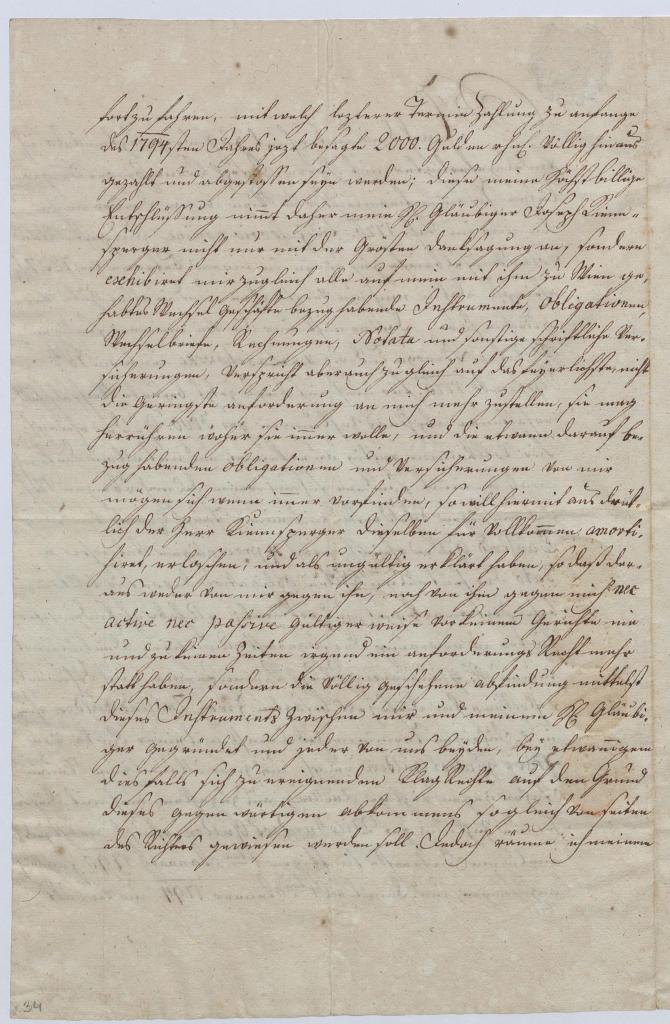 fortzufahren, mit welch lezterer Termin Zahlung zu anfange
des 1794sten Jahres jezt besagte 2000. Gulden rhn. völlig hinaus
gezahlt und abgestossen seyn werden; diese meine höchst billige
Entschlüssung nimt daher mein H. Gläubiger Joseph Kiem-
sperger nicht nur mit der Grösten danksagung an, sondern
exhibiret mir zugleich alle auf mein mit ihm zu Wien ge-
habtes Wechsel Geschäfte bezug habende Instrumente, obligationen,
Wechselbriefe, Rechnungen, Notata und sonstige schriftliche Ver-
sicherungen, verspricht aber auch zugleich auf das feyerlichste, nicht
die Geringste anforderung an mich mehr zustellen, sie mag
herrühren woher sie immer wolle, und die etwann darauf be-
zug habenden obligationen und Versicherungen von mir
mögen sich wenn immer vorfinden, so will hiermit ausdrük-
lich der Herr Kiemsperger dieselben für vollkommen amorti-
siret, erloschen, und als ungültig erklärt haben, so daß dar-
aus weder von mir gegen ihn, noch von ihm gegen mich nec
active nec passive gültiger weise vor keinem Gerichte nie
und zu keinen Zeiten irgend ein anforderungs Recht mehr
statt haben, sondern die völlig geschehene abfindung mittelst
dieses Instruments zwischen mir und meinem H. Gläubi-
ger gegründet und jeder von uns beyden, bey etwannigem
dies falls sich zu ereignenden Klag Rechte auf den Grund
dieses gegenwärtigen abkommens sogleich von seiten
des Richters gewiesen werden soll. Jedoch räume ich meinem
34